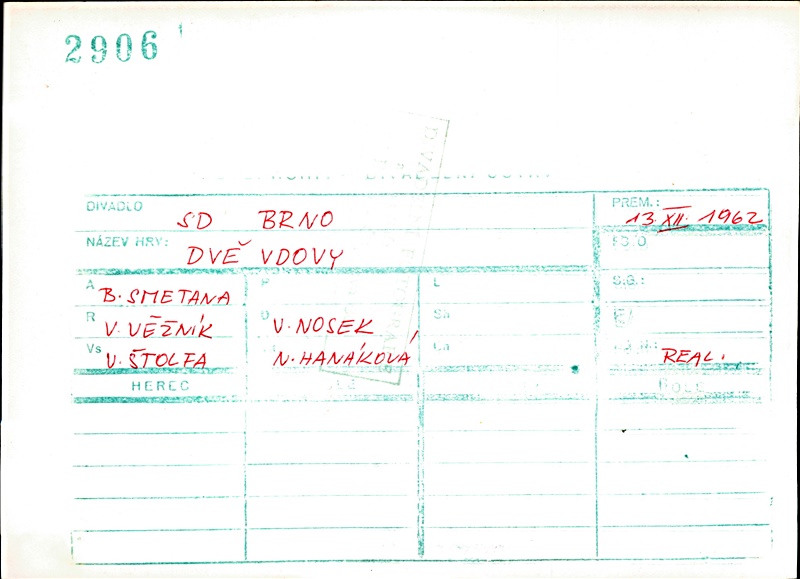 2906
DIVADLO SD BRNO PREM.: 13. XII. 1962
NÁZEV HRY: DVĚ VDOVY
A B. SMETANA P L S.G.:
R V. VĚŽNÍK V. NOSEK
Vs V. ŠTOLFA N. HANÁKOVÁ REAL.
HEREC ROLE